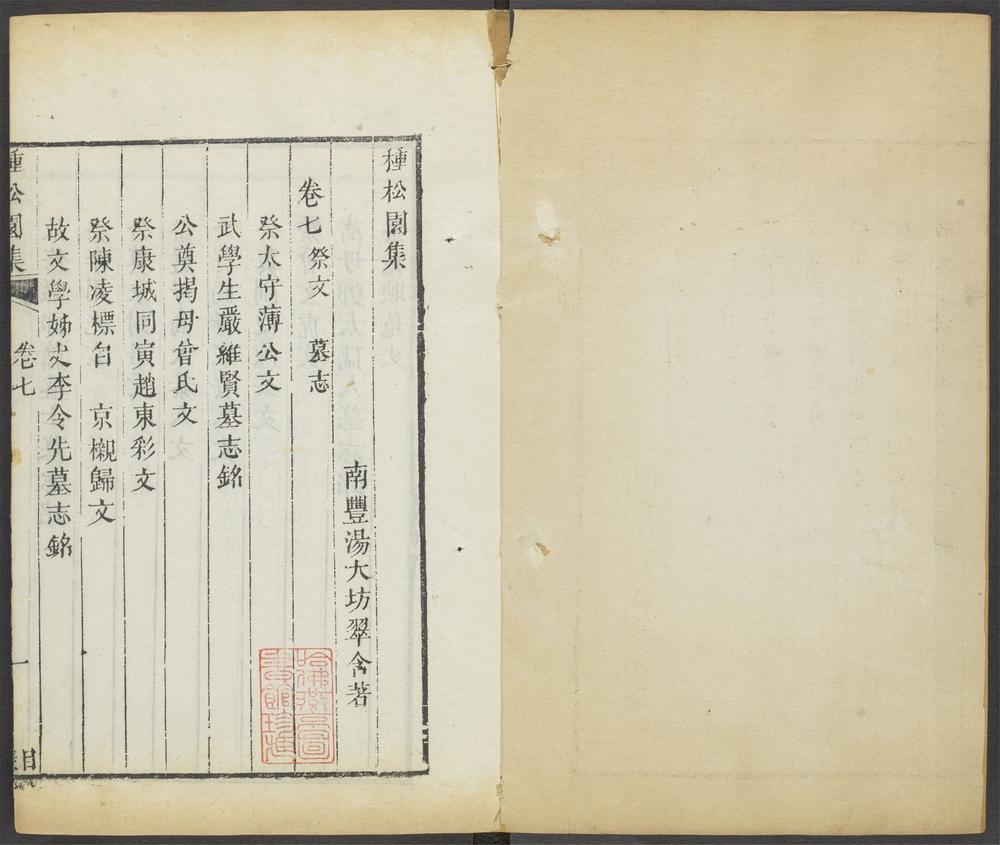 種松園集
南豐湯大坊翠含著
卷七 祭文 墓志
祭太守薄公文
武學生嚴維賢墓志銘
公奠揭母曾氏文
祭康城同寅趙東彩文
祭陳凌標自 京櫬歸文
故文學姊丈李令先墓志銘
種松園集 卷七 一 目
哈佛燕京圖
書館珍藏